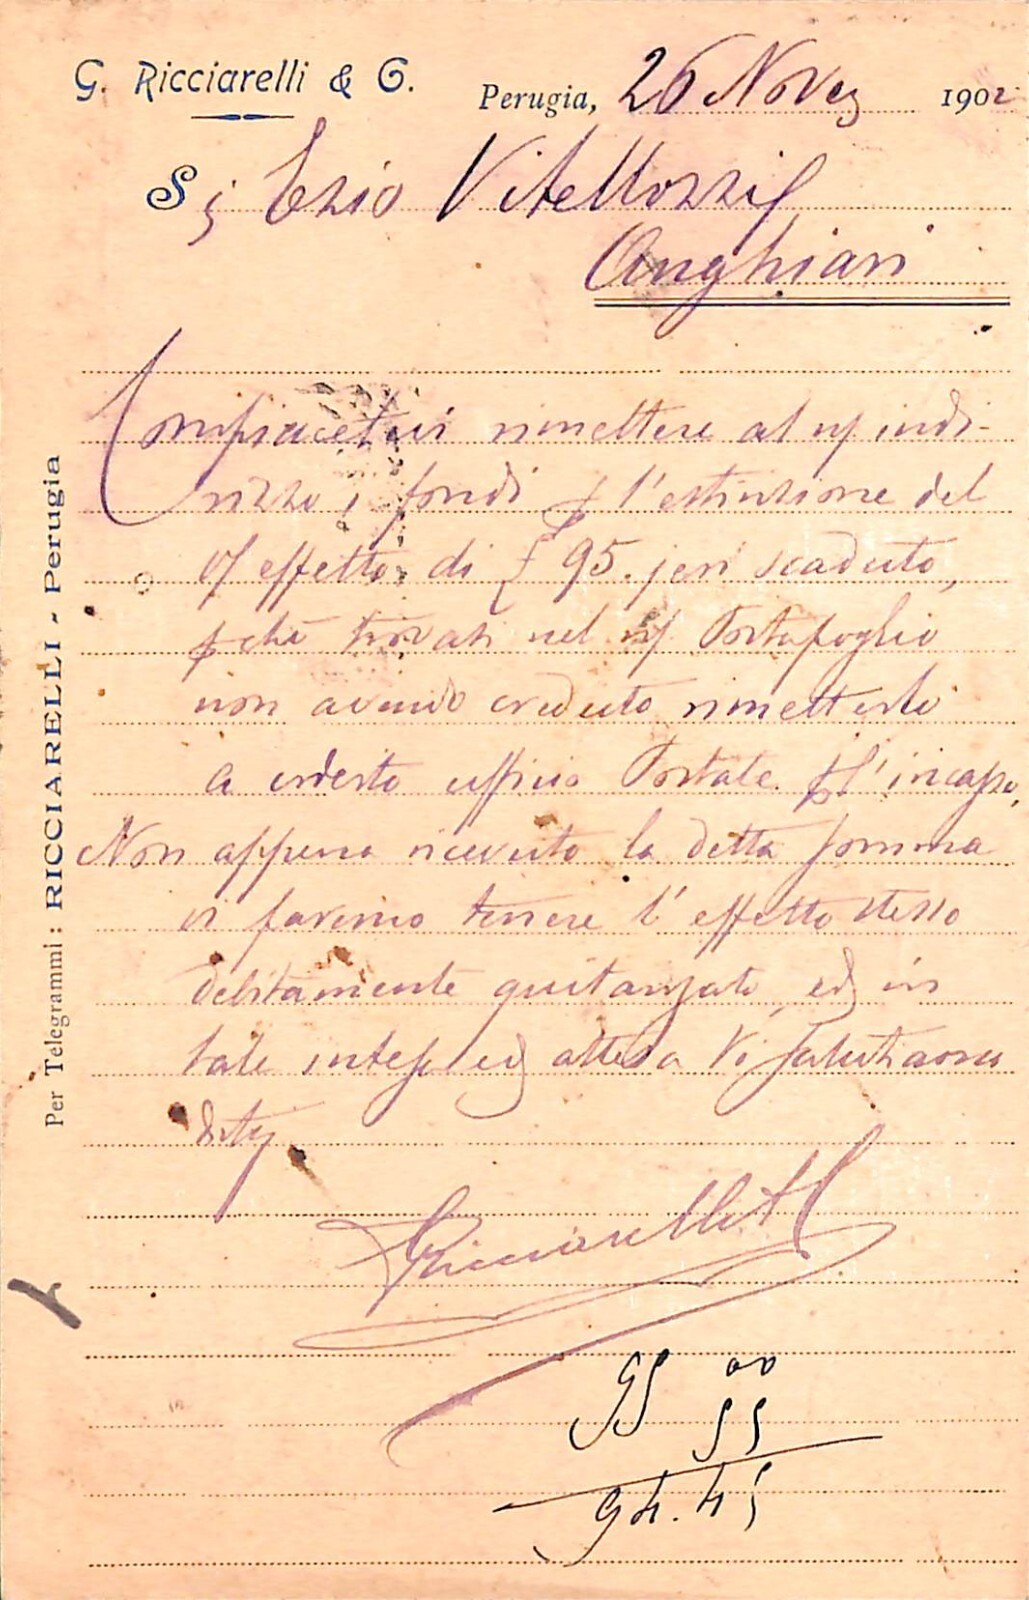 G. Ricciarelli & C.
Perugia, 26 Nov 1902
S Ezio Vitellozzi
Anghiari
Per Telegrammi: RICCIARELLI - Perugia
Compiacetevi rimettere al n/ indi-
rizzo i fondi p l'estinzione del
v/ effetto di £ 95. jeri scaduto,
pchè trovasi nel n/ Portafoglio
non avendo creduto rimetterlo
a codesto ufficio Postale p l'incasso,
Non appena ricevuto la detta somma
vi faremo tenere l'effetto stesso
debitamente quitanzato, ed in
tale intesa ed attesa Vi salutiamo
Ricciarelli & C
95 00
55
94.45